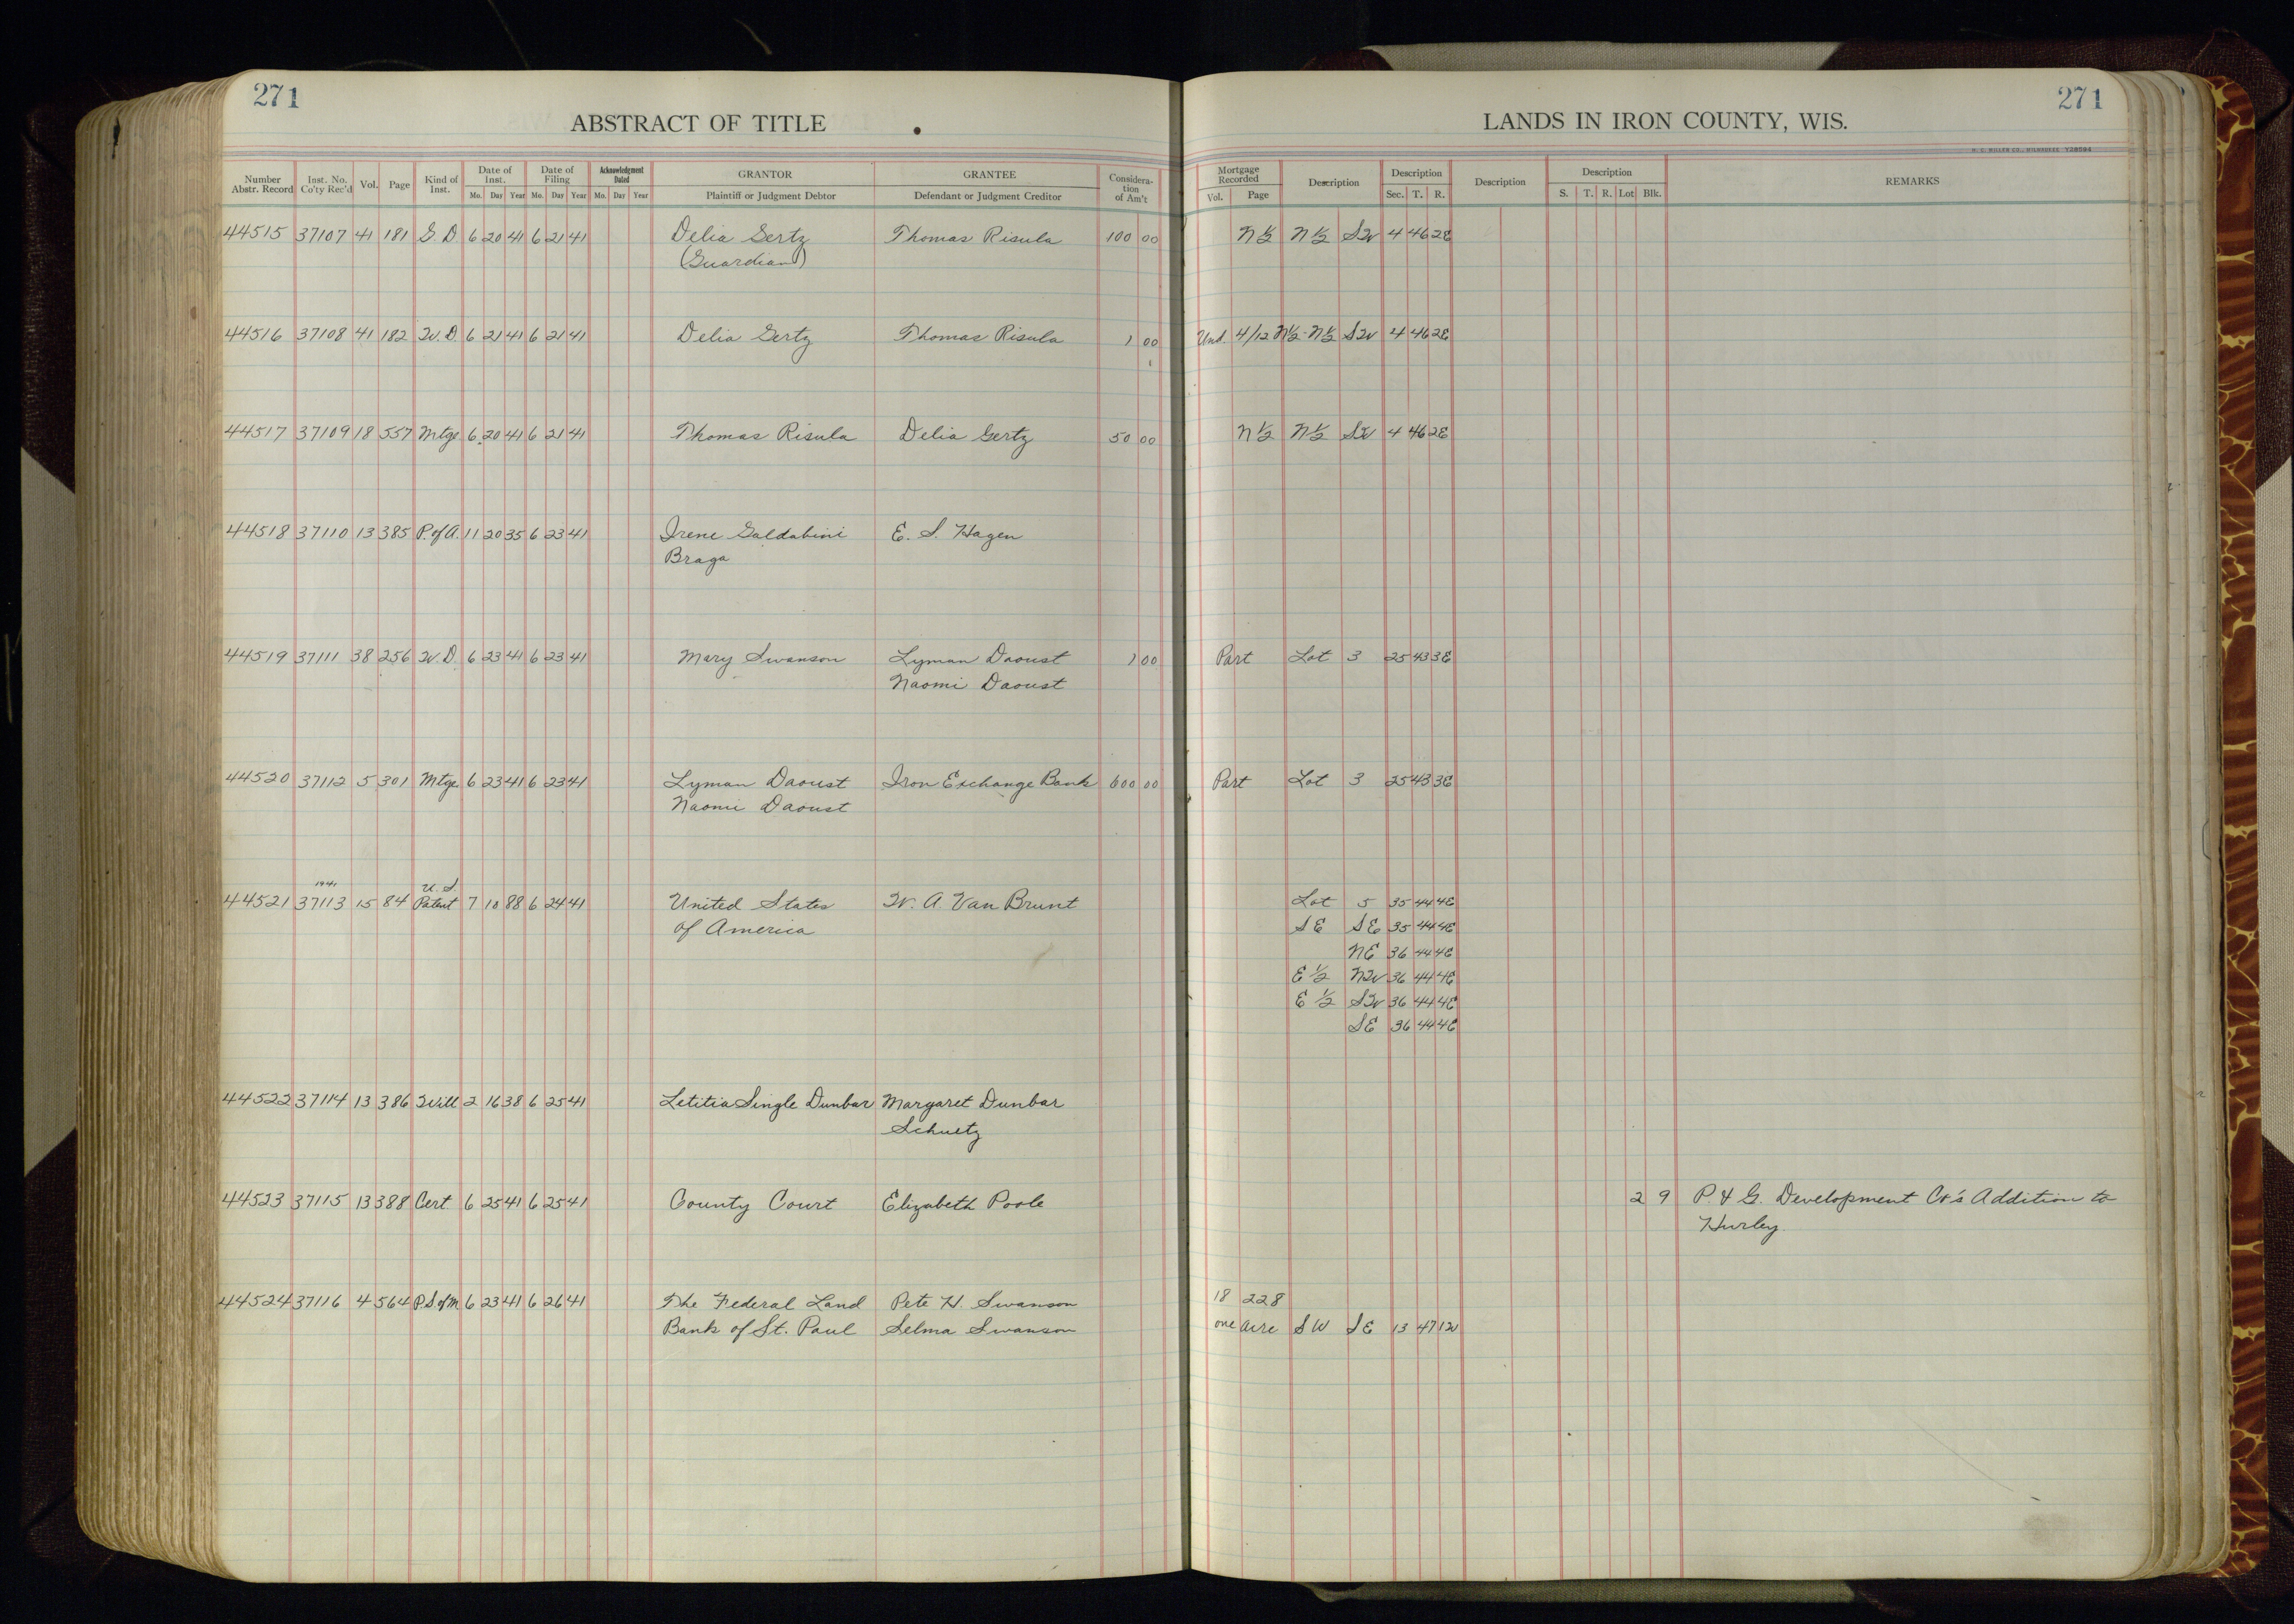 271
271
ABSTRACT OF TITLE
LANDS IN IRON COUNTY, WIS.
Number Abstr. Record Inst. No. Co'ty Rec'd Vol. Page Kind of Inst. Date of Inst. Mo. Day Year Date of Filing Mo. Day Year Acknowledgment Dated Mo. Day Year GRANTOR Plaintiff or Judgment Debtor GRANTEE Defendant or Judgment Creditor Consideration of Am't Mortgage Recorded Vol. Page Description Description Sec. T. R. Description Description S. T. R. Lot Blk. REMARKS
44515 37107 41 181 G. D 6 20 41 6 21 41 Delia Gertz Thomas Risula 100 00 N 1/2 N 1/2 SW 4 46 2E
(Guardian)
44516 37108 41 182 W. D. 6 21 41 6 21 41 Delia Gertz Thomas Risula 1 00 Und. 4/12 N 1/2 - N 1/2 SW 4 46 2E
44517 37109 18 557 Mtge 6 20 41 6 21 41 Thomas Risula Delia Gertz 50 00 N 1/2 N 1/2 SW 4 46 2E
44518 37110 13 385 P. of A. 11 20 35 6 23 41 Irene Galdabini E. S. Hagen
Braga
44519 37111 38 256 W. D. 6 23 41 6 23 41 Mary Swanson Lyman Daoust 1 00 Part Lot 3 25 43 3E
Naomi Daoust
44520 37112 5 301 Mtge 6 23 41 6 23 41 Lyman Daoust Iron Exchange Bank 600 00 Part Lot 3 25 43 3E
Naomi Daoust
1941 U. S.
44521 37113 15 84 Patent 7 10 88 6 24 41 United States W. A. Van Brunt Lot 5 35 44 4E
of America SE SE 35 44 4E
NE 36 44 4E
E 1/2 NW 36 44 4E
E 1/2 SW 36 44 4E
SE 36 44 4E
44522 37114 13 386 Will 2 16 38 6 25 41 Letitia Single Dunbar Margaret Dunbar
Schuetz
44523 37115 13 388 Cert 6 25 41 6 25 41 County Court Elizabeth Poole 2 9 P. & G. Development Co's Addition to
Hurley.
44524 37116 4 564 P.S of M 6 23 41 6 26 41 The Federal Land Pete H. Swanson 18 228
Bank of St. Paul Selma Swanson one acre SW SE 13 47 1W